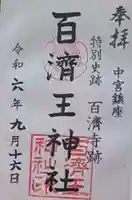 奉拝
中宮鎮座
特別史跡 百済寺跡
百濟王神社
令和六年九月十六日